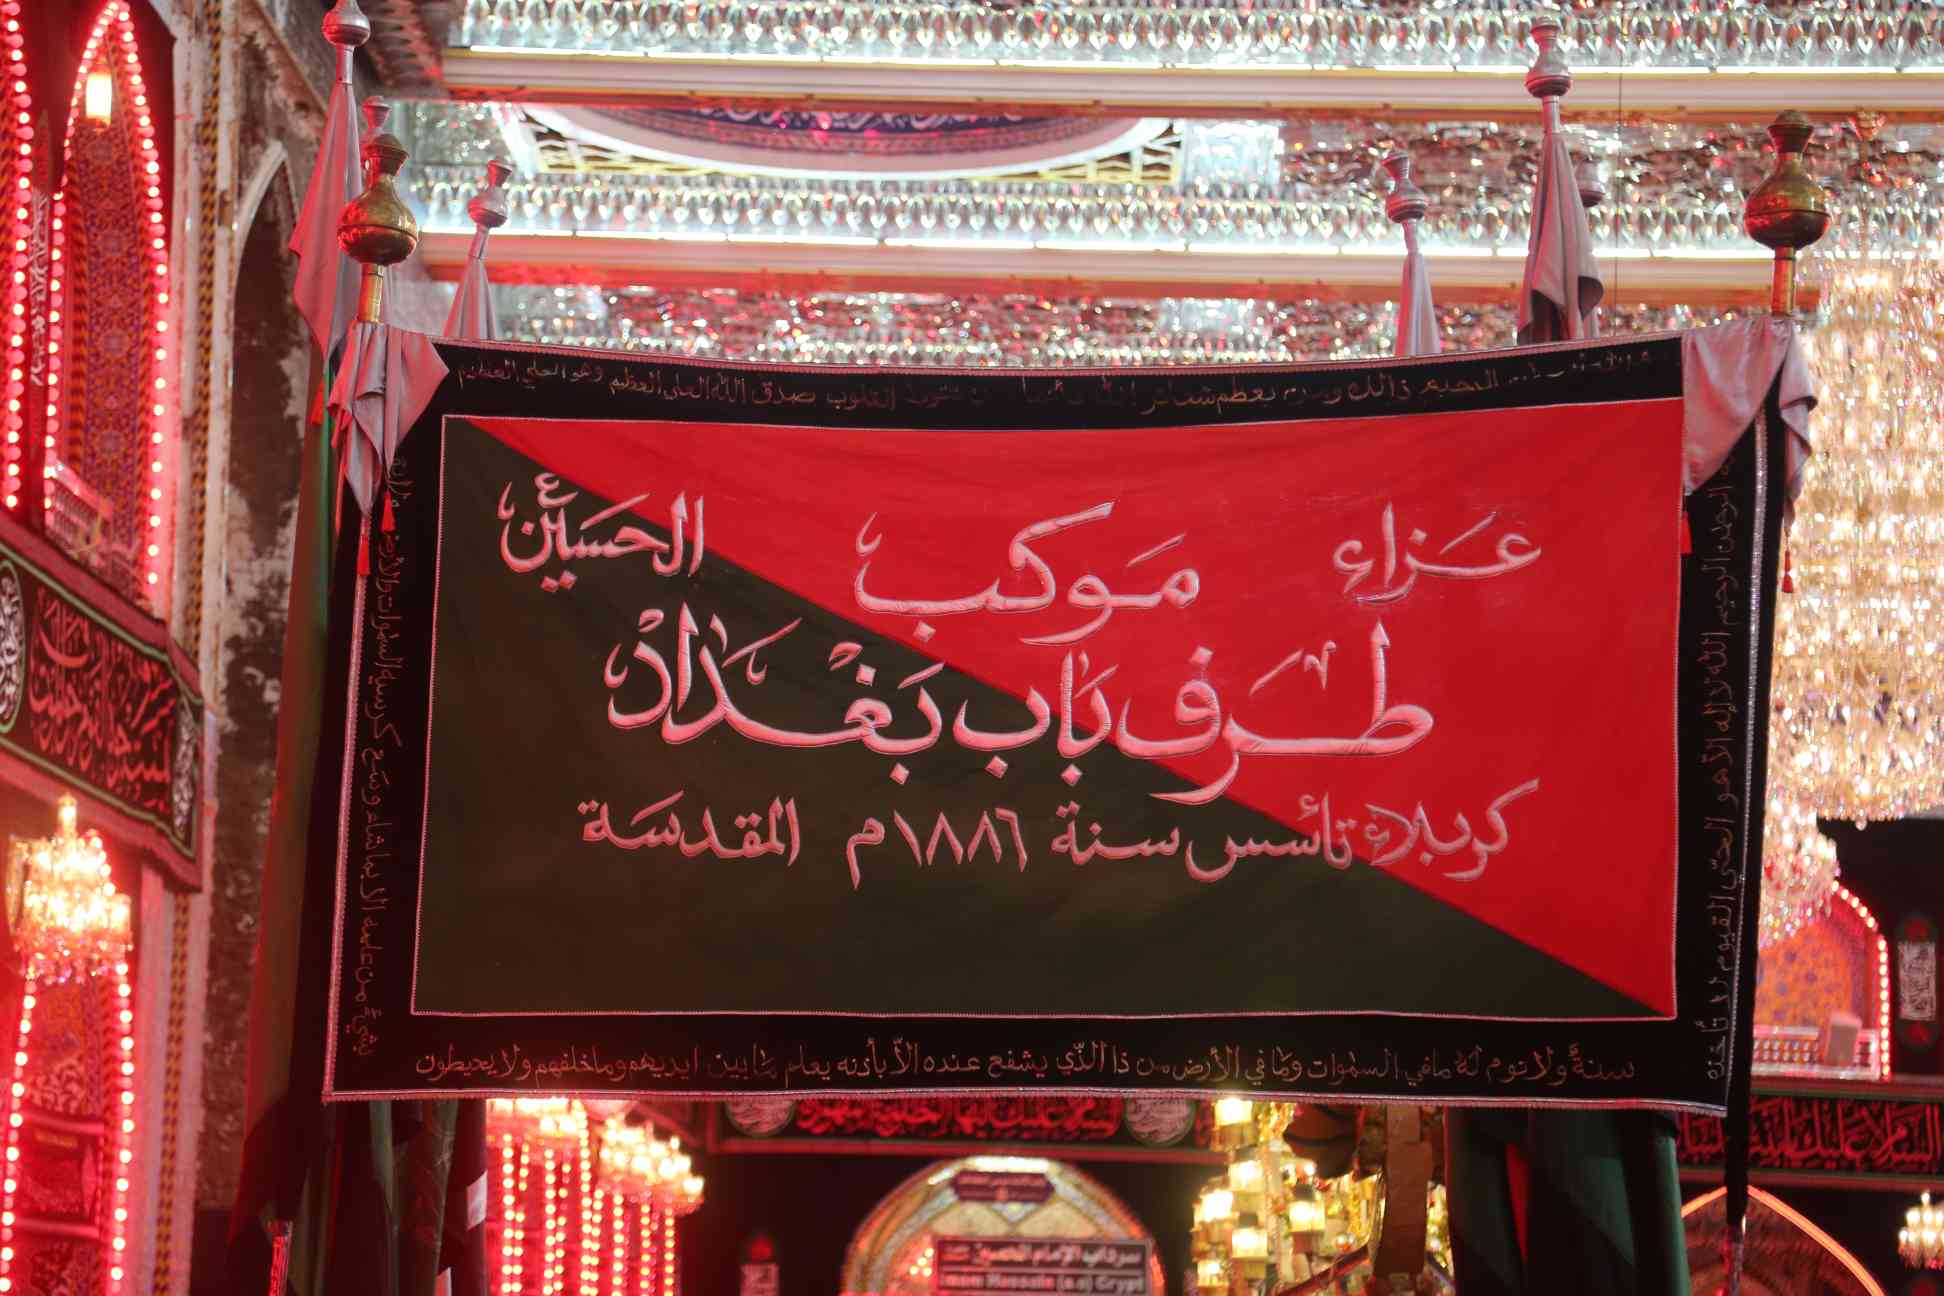 ذالك ومن يعظم شعائر الله القلوب صدق الله العلي العظيم وهو العلي العظيم
عزاء موكب الحسين ع
طرف باب بغداد
كربلاء تأسس سنة ١٨٨٦م المقدسة
الرحمن الرحيم الله لا إله الا هو الحي القيوم لا تأخذه
سنة ولا نوم له مافي السموات وما في الأرض من ذا الذي يشفع عنده الا بأذنه يعلم مابين ايديهم وما خلفهم ولا يحيطون
بشيء من علمه الا بما شاء وسع كرسيه السموات والأرض ولا
سرداب الإمام الحسين
Imam Hussain (a.s) Crypt